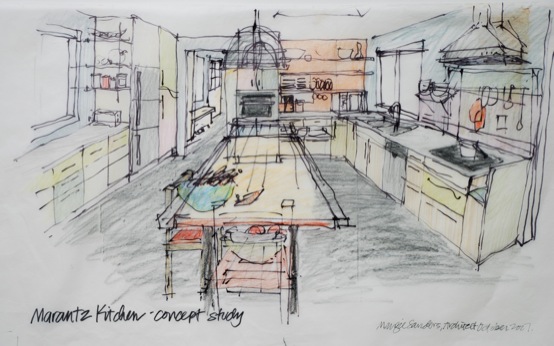 Marantz Kitchen - concept study
Sanders, Architect October 2007.